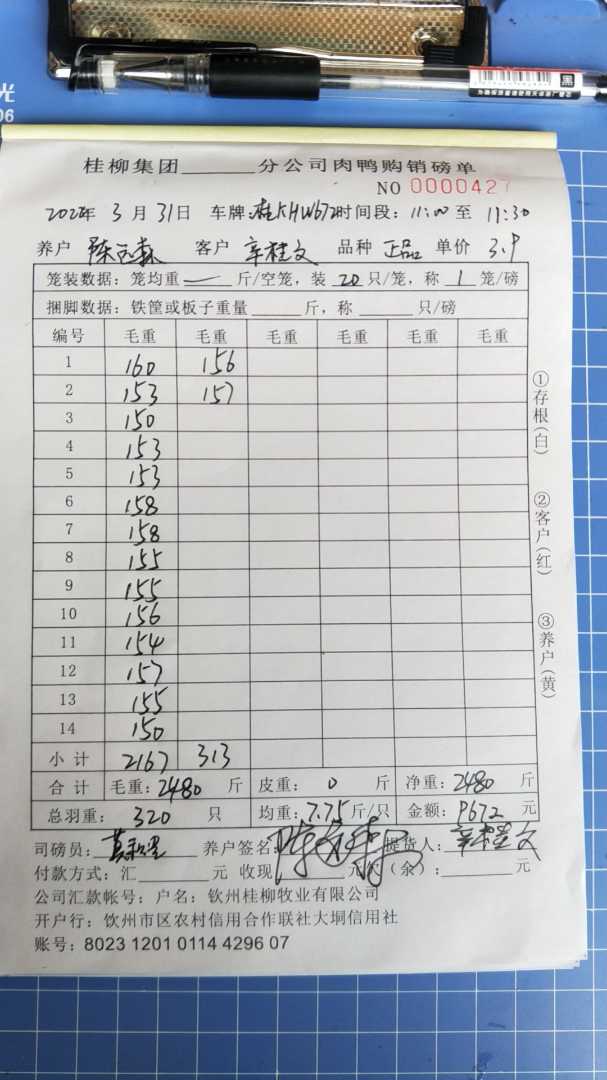 光
06
桂柳集团______分公司肉鸭购销磅单
NO 0000427
2022年 3月31日 车牌:桂KHW672时间段:11:00至 11:30
养户 陈 森 客户 辛桂文 品种 正品 单价 3.9
笼装数据:笼均重 — 斤/空笼,装 20 只/笼,称 1 笼/磅
捆脚数据:铁筐或板子重量______斤,称______只/磅
编号 毛重 毛重 毛重 毛重 毛重 毛重
1 160 156
2 153 157
3 150
4 153
5 153
6 158
7 158
8 155
9 155
10 156
11 154
12 157
13 155
14 150
小计 2167 313
合计 毛重:2480 斤 皮重: 0 斤 净重:2480 斤
总羽重: 320 只 均重:7.75斤/只 金额:9672元
司磅员: 养户签名: 提货人:辛桂文
付款方式:汇______元 收现 元 (余):______元
公司汇款帐号:户名:钦州桂柳牧业有限公司
开户行:钦州市区农村信用合作联社大垌信用社
账号:8023 1201 0114 4296 07
①存根(白)
②客户(红)
③养户(黄)